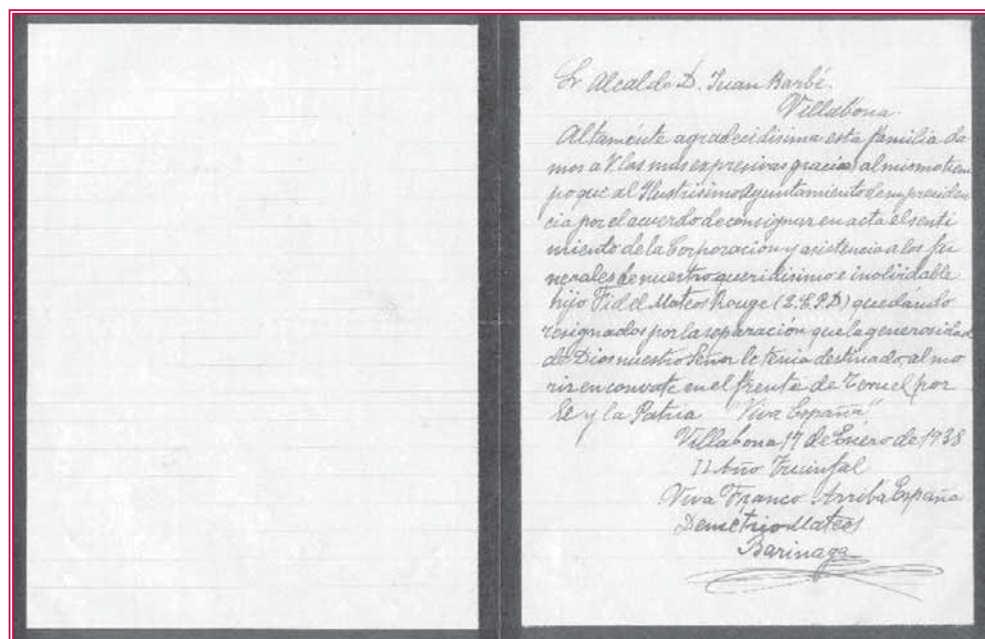 Sr Alcalde D. Juan Barbé.
Villabona
Altaménte agradecidisima esta familia da
mos a V las mas expresivas gracias al mismo tiem
po que al Ilustrisimo Ayuntamiento de su presiden
cia por el acuerdo de consignar en acta el senti
miento de la Corporación y asistencia a los fu
nerales de nuestro queridisimo e inolvidable
hijo Fidel Mateos Rouge (Q.E.P.D) quedándo
resignados por la separación que la generosidad
de Dios nuestro Señor le tenia destinado, al mo
rir en convate en el frente de Teruel por
El y la Patria "Viva España"
Villabona 17 de Enero de 1938
II Año Triunfal
Viva Franco Arriba España
Demetrio Mateos
Barinaga